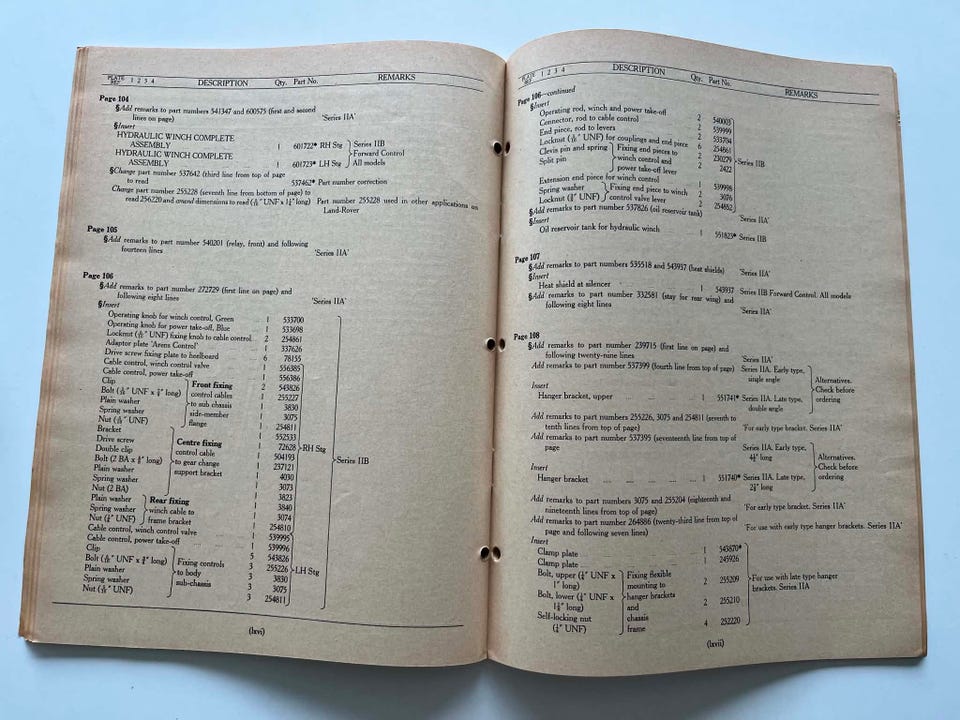 PLATE REF. 1 2 3 4 DESCRIPTION Qty. Part No. REMARKS
Page 104
§Add remarks to part numbers 541347 and 600575 (first and second
lines on page) 'Series IIA'
§Insert
HYDRAULIC WINCH COMPLETE
ASSEMBLY 1 601722* RH Stg Series IIB
HYDRAULIC WINCH COMPLETE Forward Control
ASSEMBLY 1 601723* LH Stg All models
§Change part number 537642 (third line from top of page
to read 537462* Part number correction
Change part number 255228 (seventh line from bottom of page) to
read 256220 and amend dimensions to read (5/16" UNF x 1¼" long) Part number 255228 used in other applications on
Land-Rover
Page 105
§Add remarks to part number 540201 (relay, front) and following
fourteen lines 'Series IIA'
Page 106
§Add remarks to part number 272729 (first line on page) and
following eight lines 'Series IIA'
§Insert
Operating knob for winch control, Green 1 533700
Operating knob for power take-off, Blue 1 533698
Locknut (5/16" UNF) fixing knob to cable control 2 254861
Adaptor plate 'Arens Control' 1 337626
Drive screw fixing plate to heelboard 6 78155
Cable control, winch control valve 1 556385
Cable control, power take-off 1 556386
Clip Front fixing 2 543826
Bolt UNF long) control cables 1 255227
Plain washer to sub chassis 1 3830
Spring washer side-member 1 3075
Nut (5/16" UNF) flange 1 254811
Bracket 1 552533
Drive screw Centre fixing 1 72628 RH Stg
Double clip control cable 1 504193
Bolt (2 BA x long) to gear change 1 237121 Series IIB
Plain washer support bracket 1 4030
Spring washer 1 3073
Nut (2 BA) 1 3823
Plain washer Rear fixing 1 3840
Spring washer winch cable to 1 3074
Nut (¼" UNF) frame bracket 1 254810
Cable control, winch control valve 1 539995
Cable control, power take-off 1 539996
Clip 5 543826
Bolt (5/16" UNF x ¾" long) Fixing controls 3 255226 LH Stg
Plain washer to body 3 3830
Spring washer sub-chassis 3 3075
Nut (5/16" UNF) 3 254811
(lxvi)
PLATE REF. 1 2 3 4 DESCRIPTION Qty. Part No. REMARKS
Page 106—continued
§Insert
Operating rod, winch and power take-off 2 540003
Connector, rod to cable control 2 539999
End piece, rod to levers 2 533734
Locknut UNF) for couplings and end piece 6 254861
Clevis pin and spring Fixing end pieces to 2 230279 Series IIB
Split pin winch control and 2 2422
power take-off lever
Extension end piece for winch control 1 539998
Spring washer Fixing end piece to winch 2 3076
Locknut UNF) control valve lever 2 254852
§Add remarks to part number 537826 (oil reservoir tank) 'Series IIA'
§Insert
Oil reservoir tank for hydraulic winch 1 551823* Series IIB
Page 107
§Add remarks to part numbers 535518 and 543937 (heat shields) 'Series IIA'
§Insert
Heat shield at silencer 1 543937 Series IIB Forward Control. All models
§Add remarks to part number 332581 (stay for rear wing) and
following eight lines 'Series IIA'
Page 108
§Add remarks to part number 239715 (first line on page) and
following twenty-nine lines 'Series IIA'
Add remarks to part number 537399 (fourth line from top of page) Series IIA. Early type,
single angle Alternatives.
Insert Check before
Hanger bracket, upper 1 551741* Series IIA. Late type, ordering
double angle
Add remarks to part numbers 255226, 3075 and 254811 (seventh to
tenth lines from top of page) 'For early type bracket. Series IIA'
Add remarks to part number 537395 (seventeenth line from top of
page Series IIA. Early type,
4¾" long Alternatives.
Insert Check before
Hanger bracket 1 551740* Series IIA. Late type, ordering
2¾" long
Add remarks to part numbers 3075 and 255204 (eighteenth and
nineteenth lines from top of page) 'For early type bracket. Series IIA'
Add remarks to part number 264886 (twenty-third line from top of
page and following seven lines) 'For use with early type hanger brackets. Series IIA'
Insert
Clamp plate 1 543870*
Clamp plate 1 245926
Bolt, upper (¼" UNF x Fixing flexible
1" long) mounting to 2 255209 For use with late type hanger
Bolt, lower (¼" UNF x hanger brackets brackets. Series IIA
1⅛" long) and 2 255210
Self-locking nut chassis
(¼" UNF) frame 4 252220
(lxvii)